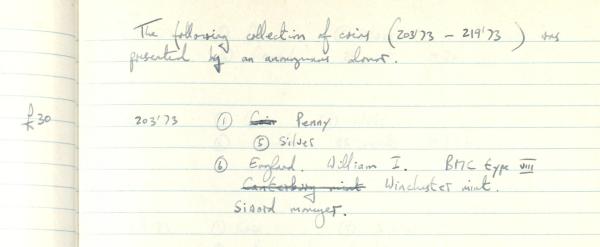 The following collection of coins (203'73 - 219'73) was
presented by an anonymous donor.
£30 203'73 ① Coin Penny
⑤ Silver
⑥ England. William I. BMC type VIII
Canterbury mint Winchester mint.
Siword moneyer.